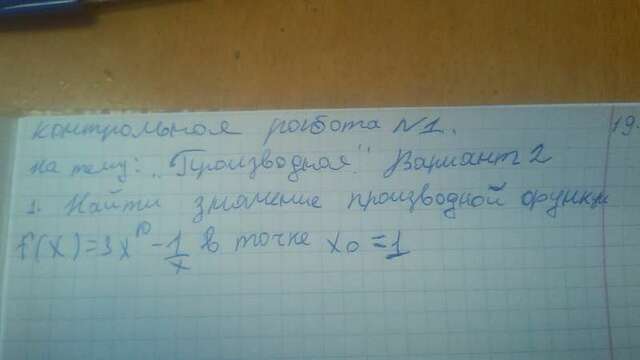 контрольная работа №1.
на тему: „Производная". Вариант 2
1. Найти значение производной функции
f(x)=3x¹⁰-1/x в точке x₀=1
19